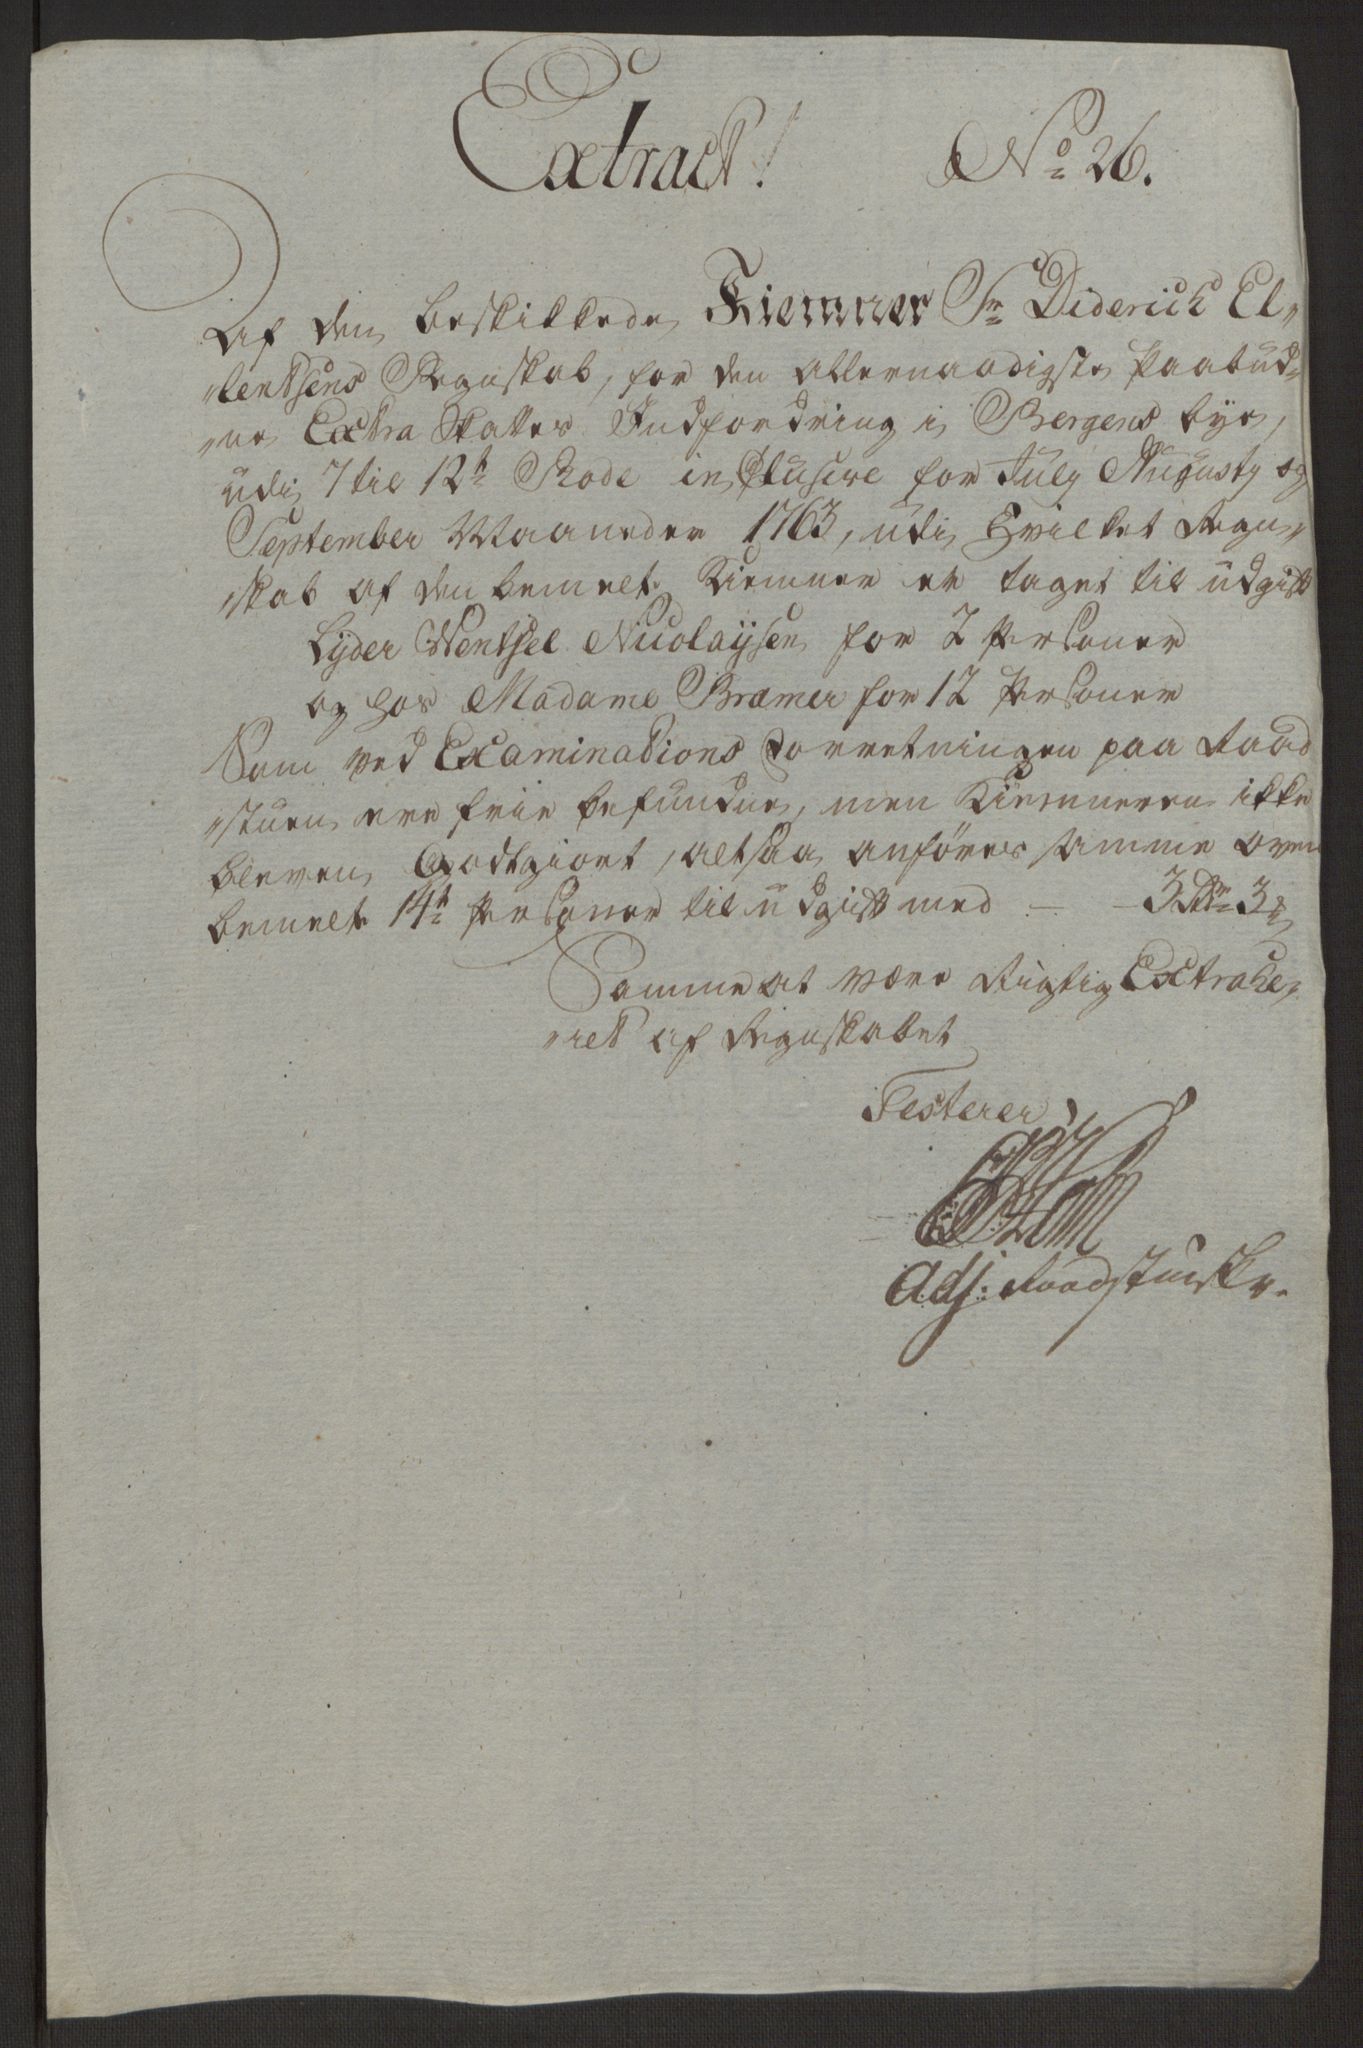 Extract! No 26.
Af den beskikkede Kiemner Sr Diderich El-
lertsens Regnskab, for den allernaadigste Paabud-
ne Extra Skattes Indfordring i Bergens bye,
udi 7 til 12te Rode inclusive for July Augusty og
September Maaneder 1763, udi hvilket Regn-
skab af den bemelte Kiemner er taget til udgift
Lyder Wentsel Nicolaysen for 2 Personer
og hos Madame Bræmer for 12 Personer
Som ved Examinations Forretningen paa Raad
stuen ere frie befundne, men Kiemneren ikke
bleven Godtgiort, altsaa anföres samme oven
bemelte 14te Personer til udgift med - - 3
Samme at være Rigtig Extrahe-
ret af Regnskabet
Testerer
Adj: Raadstueskr.